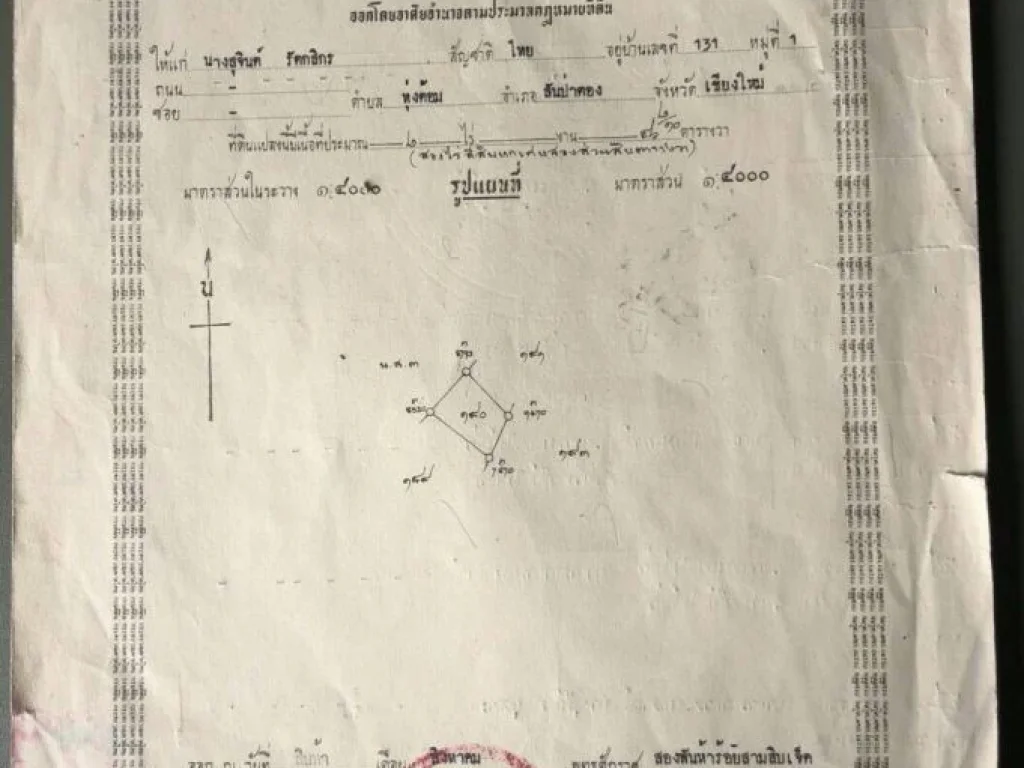 ออกโดยอาศัยอำนาจตามประมวลกฎหมายที่ดิน
ให้แก่ นางสุจินต์ รัตกสิกร สัญชาติ ไทย อยู่บ้านเลขที่ 131 หมู่ที่ 1
ถนน - ตำบล ทุ่งต้อม อำเภอ สันป่าตอง จังหวัด เชียงใหม่
ซอย -
ที่ดินแปลงนี้มีเนื้อที่ประมาณ ๒ ไร่ งาน ๔๖ ๒/๑๐ ตารางวา
(สองไร่สี่สิบหกเศษสองส่วนสิบตารางวา)
มาตราส่วนในระวาง ๑:๔๐๐๐ รูปแผนที่ มาตราส่วน ๑:๔๐๐๐
น
น.ส.๓ ๑๘๑
๑๘๐
๑๘๓
๑๘๘
ออก ณ วันที่ สิบห้า เดือน สิงหาคม พุทธศักราช สองพันห้าร้อยสามสิบเจ็ด